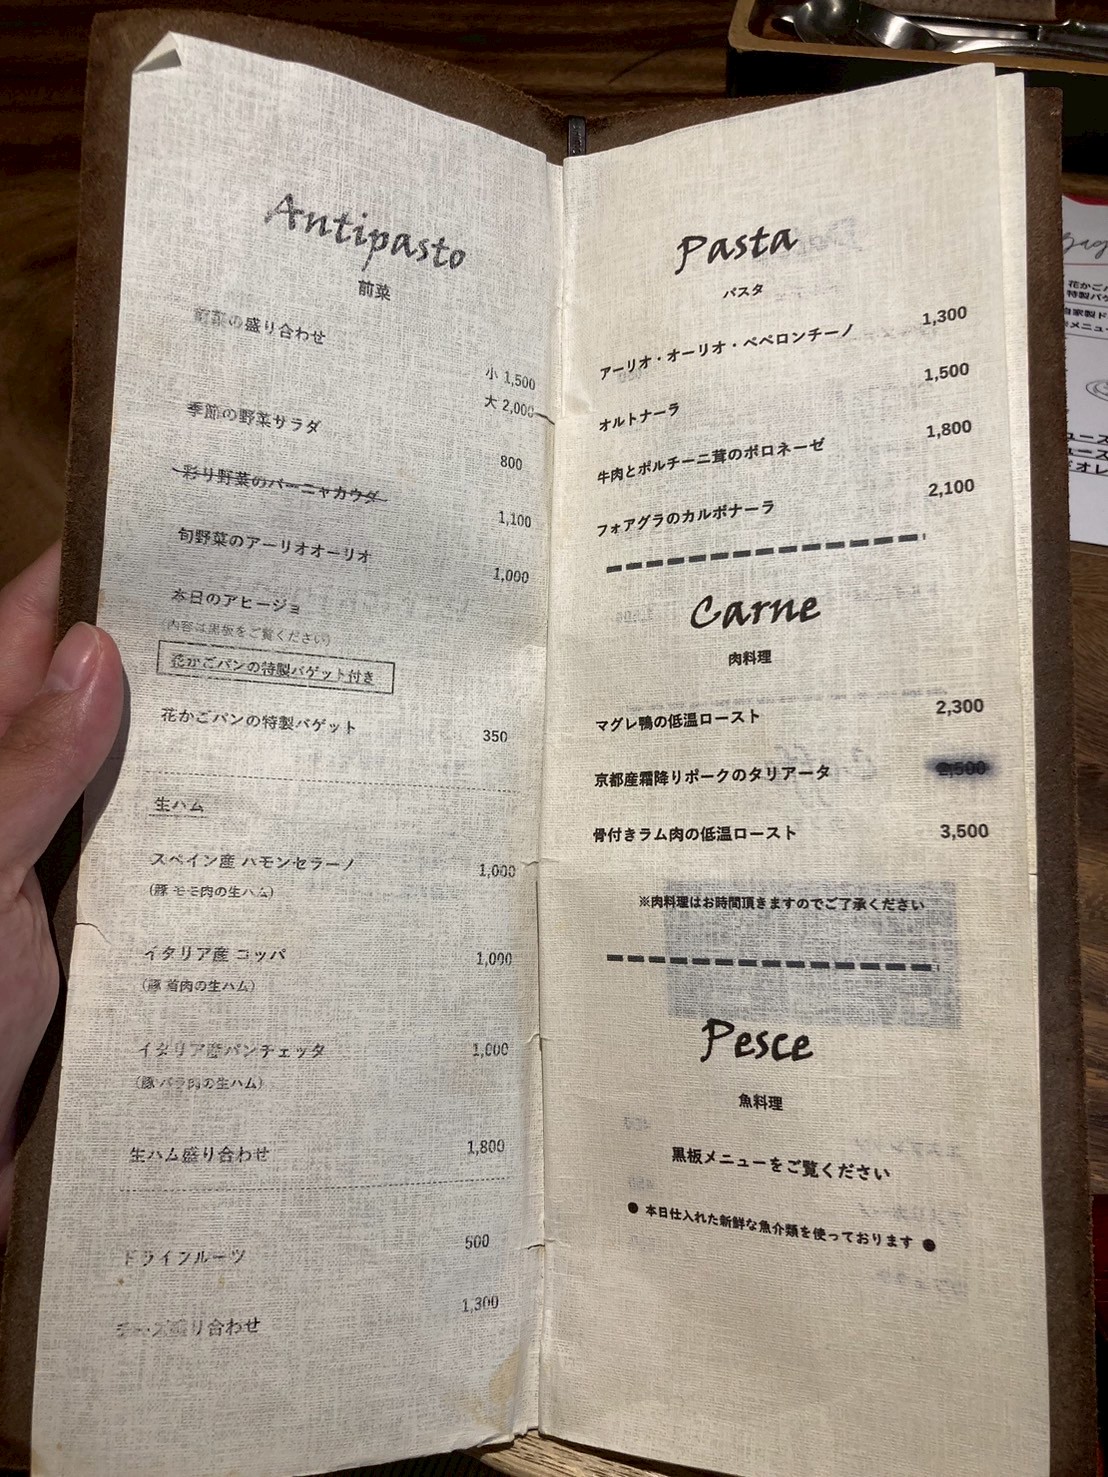 Antipasto
前菜
前菜の盛り合わせ
小 1,500
大 2,000
季節の野菜サラダ
800
彩り野菜のバーニャカウダ
1,100
旬野菜のアーリオオーリオ
1,000
本日のアヒージョ
(内容は黒板をご覧ください)
花かごパンの特製バゲット付き
花かごパンの特製バゲット
350
生ハム
スペイン産 ハモンセラーノ
1,000
(豚 モモ肉の生ハム)
イタリア産 コッパ
1,000
(豚 首肉の生ハム)
イタリア産パンチェッタ
1,000
(豚 バラ肉の生ハム)
生ハム盛り合わせ
1,800
ドライフルーツ
500
チーズ盛り合わせ
1,300
Pasta
パスタ
アーリオ・オーリオ・ペペロンチーノ
1,300
オルトナーラ
1,500
牛肉とポルチーニ茸のボロネーゼ
1,800
フォアグラのカルボナーラ
2,100
Carne
肉料理
マグレ鴨の低温ロースト
2,300
京都産霜降りポークのタリアータ
2,500
骨付きラム肉の低温ロースト
3,500
※肉料理はお時間頂きますのでご了承ください
Pesce
魚料理
黒板メニューをご覧ください
● 本日仕入れた新鮮な魚介類を使っております ●